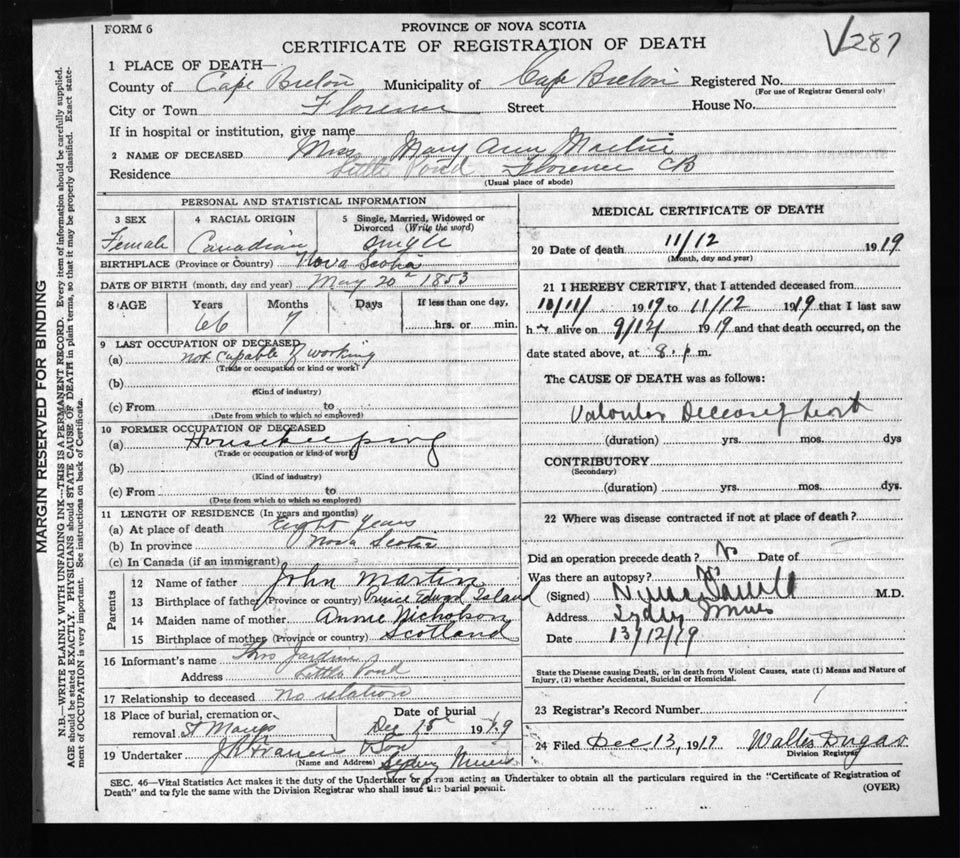 FORM 6
PROVINCE OF NOVA SCOTIA
CERTIFICATE OF REGISTRATION OF DEATH
V287
1 PLACE OF DEATH—
County of Cape Breton Municipality of Cape Breton Registered No.
(For use of Registrar General only)
City or Town Florence Street House No.
If in hospital or institution, give name
2 NAME OF DECEASED Miss Mary Ann Martin
Residence Little Pond Florence CB
(Usual place of abode)
PERSONAL AND STATISTICAL INFORMATION
3 SEX 4 RACIAL ORIGIN 5 Single, Married, Widowed or Divorced (Write the word)
Female Canadian Single
BIRTHPLACE (Province or Country) Nova Scotia
DATE OF BIRTH (month, day and year) May 20 1853
8 AGE Years Months Days If less than one day,
66 7 hrs. or min.
9 LAST OCCUPATION OF DECEASED
(a) not capable of working
(Trade or occupation or kind or work)
(b)
(Kind of industry)
(c) From to
(Date from which to which so employed)
10 FORMER OCCUPATION OF DECEASED
(a) Housekeeping
(Trade or occupation or kind of work)
(b)
(Kind of industry)
(c) From to
(Date from which to which so employed)
11 LENGTH OF RESIDENCE (In years and months)
(a) At place of death Eight Years
(b) In province Nova Scotia
(c) In Canada (if an immigrant)
Parents
12 Name of father John Martin
13 Birthplace of father (Province or country) Prince Edward Island
14 Maiden name of mother Annie Nicholson
15 Birthplace of mother (Province or country) Scotland
16 Informant's name Thos Jardine
Address Little Pond
17 Relationship to deceased no relation
18 Place of burial, cremation or removal St Marys
Date of burial Dec 15 1919
19 Undertaker J Francis & Son
(Name and Address) Sydney Mines
MEDICAL CERTIFICATE OF DEATH
20 Date of death 11/12 1919
(Month, day and year)
21 I HEREBY CERTIFY, that I attended deceased from
10/11/ 1919 to 11/12 1919 that I last saw
h alive on 9/12/ 1919 and that death occurred, on the
date stated above, at 8 p m.
The CAUSE OF DEATH was as follows:
Valvular Disease heart
(duration) yrs. mos. dys
CONTRIBUTORY
(Secondary)
(duration) yrs. mos. dys.
22 Where was disease contracted if not at place of death?
Did an operation precede death? No Date of
Was there an autopsy? No
(Signed) M.D.
Address Sydney Mines
Date 13/12/19
State the Disease causing Death, or in death from Violent Causes, state (1) Means and Nature of
Injury, (2) whether Accidental, Suicidal or Homicidal.
23 Registrar's Record Number
24 Filed Dec 13, 1919
Division Registrar
SEC. 46—Vital Statistics Act makes it the duty of the Undertaker or person acting as Undertaker to obtain all the particulars required in the "Certificate of Registration of
Death" and to fyle the same with the Division Registrar who shall issue the burial permit.
(OVER)
MARGIN RESERVED FOR BINDING
N.B.—WRITE PLAINLY WITH UNFADING INK—THIS IS A PERMANENT RECORD. Every item of information should be carefully supplied.
AGE should be stated EXACTLY. PHYSICIANS should STATE CAUSE OF DEATH in plain terms, so that it may be properly classified. Exact state-
ment of OCCUPATION is very important. See instructions on back of Certificate.